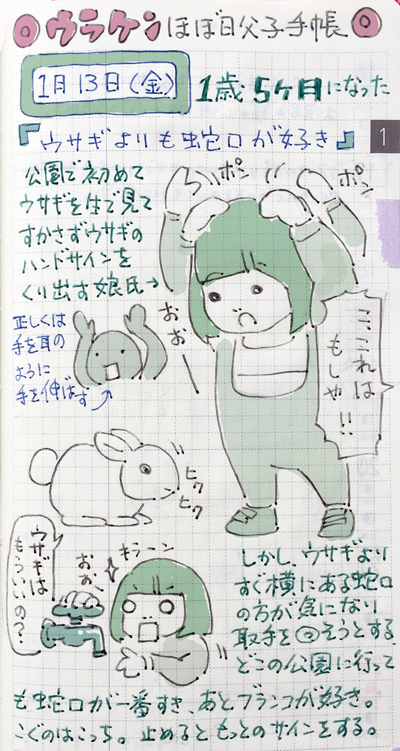 ウラケンほぼ日父子手帳
1月13日(金)
1歳5ヶ月になった
『ウサギよりも蛇口が好き』
1
公園で初めて
ウサギを生で見て
すかさずウサギの
ハンドサインを
くり出す娘氏→
ポン
ポン
正しくは
手を耳の
ように
手を伸ばす
おお
こ、これは
もしや!!
ヒク
ヒク
ウサギは
もういいの?
おお、
キラーン
しかし、ウサギより
すぐ横にある蛇口
の方が気になり
取手を回そうとする
どこの公園に行って
も蛇口が一番すき、あとブランコが好き。
こぐのはこっち。止めるともっとのサインをする。